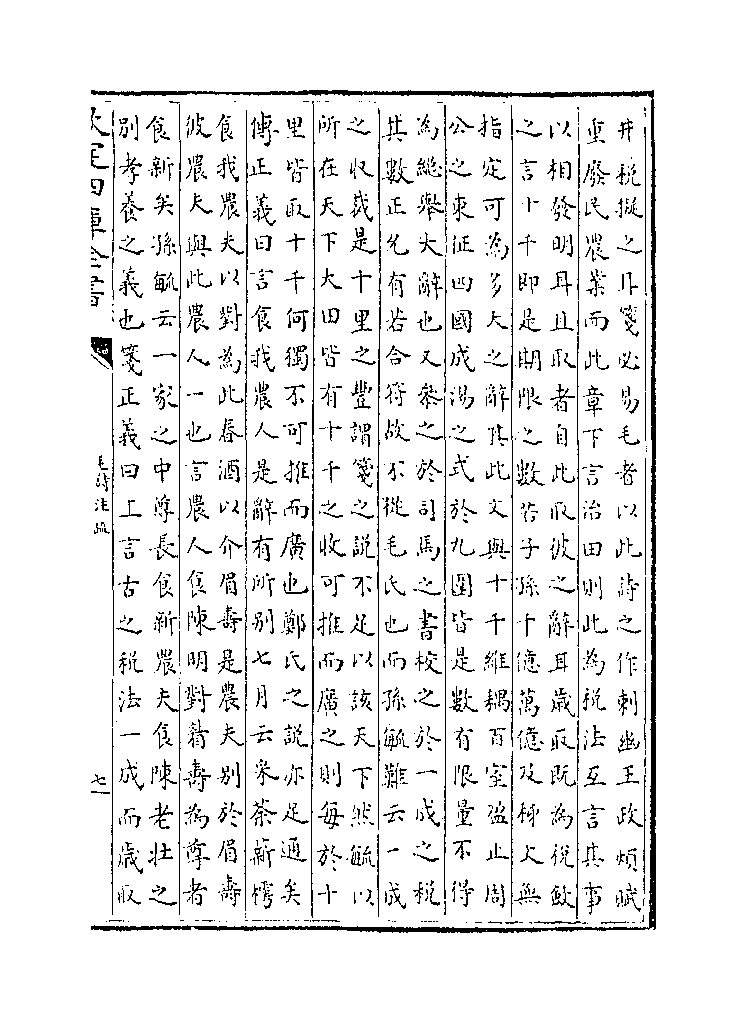 井稅擬之耳箋必易毛者以此詩之作刺幽王政煩賦
重廢民農業而此章下言治田則此為稅法互言其事
以相發明耳且取者自此取彼之辭耳歲取既為稅斂
之言十千即是期限之數若子孫千億萬億及秭大無
指定可為多大之辭耳此文與十千維耦百室盈止周
公之東征四國成湯之式於九圍皆是數有限量不得
為總舉大辭也又叅之於司馬之書校之於一成之稅
其數正允有若合符故不從毛氏也而孫毓難云一成
之收裁是十里之豐謂箋之說不足以該天下然毓以
所在天下大田皆有十千之收可推而廣之則每於十
里皆取十千何獨不可推而廣也鄭氏之說亦足通矣
傳正義曰言食我農人是辭有所别七月云采荼薪樗
食我農夫以對為此春酒以介眉壽是農夫别於眉壽
彼農夫與此農人一也言農人食陳明對耆壽為尊者
食新矣孫毓云一家之中尊長食新農夫食陳老壯之
别孝養之義也箋正義曰上言古之稅法一成而歲取
欽定四庫全書
毛詩注疏
七